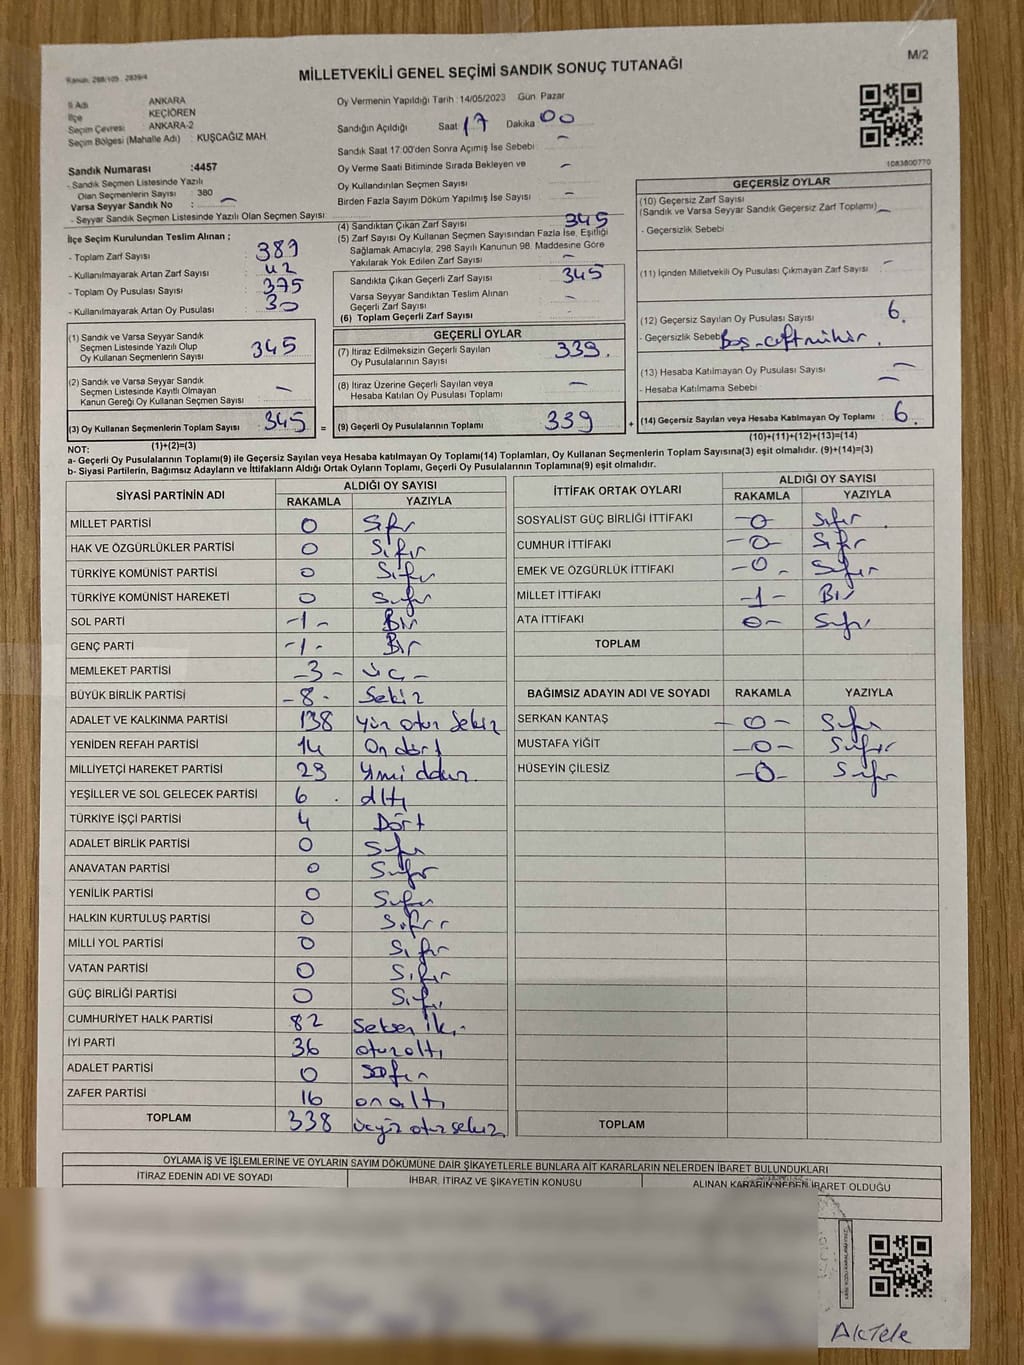 Kanun: 298/105 , 2839/4
M/2
MİLLETVEKİLİ GENEL SEÇİMİ SANDIK SONUÇ TUTANAĞI
İl Adı ANKARA
İlçe KEÇİÖREN
Seçim Çevresi ANKARA-2
Seçim Bölgesi (Mahalle Adı) : KUŞCAĞIZ MAH
Oy Vermenin Yapıldığı Tarih :14/05/2023 Gün: Pazar
Sandığın Açıldığı Saat 17 Dakika 00
Sandık Saat 17:00'den Sonra Açımış İse Sebebi –
Oy Verme Saati Bitiminde Sırada Bekleyen ve –
Oy Kullandırılan Seçmen Sayısı
Birden Fazla Sayım Döküm Yapılmış İse Sayısı –
1083800770
Sandık Numarası :4457
- Sandık Seçmen Listesinde Yazılı
Olan Seçmenlerin Sayısı : 380
Varsa Seyyar Sandık No : –
- Seyyar Sandık Seçmen Listesinde Yazılı Olan Seçmen Sayısı:
İlçe Seçim Kurulundan Teslim Alınan ;
- Toplam Zarf Sayısı : 389
- Kullanılmayarak Artan Zarf Sayısı : 42
- Toplam Oy Pusulası Sayısı : 375
- Kullanılmayarak Artan Oy Pusulası : 30
(1) Sandık ve Varsa Seyyar Sandık
Seçmen Listesinde Yazılı Olup
Oy Kullanan Seçmenlerin Sayısı : 345
(2) Sandık ve Varsa Seyyar Sandık
Seçmen Listesinde Kayıtlı Olmayan
Kanun Gereği Oy Kullanan Seçmen Sayısı : –
(3) Oy Kullanan Seçmenlerin Toplam Sayısı : 345 =
(1)+(2)=(3)
(4) Sandıktan Çıkan Zarf Sayısı 345
(5) Zarf Sayısı Oy Kullanan Seçmen Sayısından Fazla İse, Eşitliği
Sağlamak Amacıyla, 298 Sayılı Kanunun 98. Maddesine Göre
Yakılarak Yok Edilen Zarf Sayısı : –
Sandıkta Çıkan Geçerli Zarf Sayısı : 345
Varsa Seyyar Sandıktan Teslim Alınan
Geçerli Zarf Sayısı : –
(6) Toplam Geçerli Zarf Sayısı : –
GEÇERLİ OYLAR
(7) İtiraz Edilmeksizin Geçerli Sayılan
Oy Pusulalarının Sayısı : 339.
(8) İtiraz Üzerine Geçerli Sayılan veya
Hesaba Katılan Oy Pusulası Toplamı : –
(9) Geçerli Oy Pusulalarının Toplamı : 339 +
GEÇERSİZ OYLAR
(10) Geçersiz Zarf Sayısı
(Sandık ve Varsa Seyyar Sandık Geçersiz Zarf Toplamı): –
- Geçersizlik Sebebi :
(11) İçinden Milletvekili Oy Pusulası Çıkmayan Zarf Sayısı : –
(12) Geçersiz Sayılan Oy Pusulası Sayısı : 6.
- Geçersizlik Sebebi Boş-çift mühür.
(13) Hesaba Katılmayan Oy Pusulası Sayısı : –
- Hesaba Katılmama Sebebi : –
(14) Geçersiz Sayılan veya Hesaba Katılmayan Oy Toplamı : 6.
(10)+(11)+(12)+(13)=(14)
NOT:
a- Geçerli Oy Pusulalarının Toplamı(9) ile Geçersiz Sayılan veya Hesaba katılmayan Oy Toplamı(14) Toplamları, Oy Kullanan Seçmenlerin Toplam Sayısına(3) eşit olmalıdır. (9)+(14)=(3)
b- Siyasi Partilerin, Bağımsız Adayların ve İttifakların Aldığı Ortak Oyların Toplamı, Geçerli Oy Pusulalarının Toplamına(9) eşit olmalıdır.
SİYASİ PARTİNİN ADI ALDIĞI OY SAYISI
RAKAMLA YAZIYLA
MİLLET PARTİSİ 0 Sıfır
HAK VE ÖZGÜRLÜKLER PARTİSİ 0 Sıfır
TÜRKİYE KOMÜNİST PARTİSİ 0 Sıfır
TÜRKİYE KOMÜNİST HAREKETİ 0 Sıfır
SOL PARTİ -1- Bir
GENÇ PARTİ -1- Bir
MEMLEKET PARTİSİ -3- Üç-
BÜYÜK BİRLİK PARTİSİ -8- Sekiz
ADALET VE KALKINMA PARTİSİ 138 Yüz otuz sekiz
YENİDEN REFAH PARTİSİ 14 On dört
MİLLİYETÇİ HAREKET PARTİSİ 29 Yirmi dokuz.
YEŞİLLER VE SOL GELECEK PARTİSİ 6 . altı
TÜRKİYE İŞÇİ PARTİSİ 4 Dört
ADALET BİRLİK PARTİSİ 0 Sıfır
ANAVATAN PARTİSİ 0 Sıfır
YENİLİK PARTİSİ 0 Sıfır
HALKIN KURTULUŞ PARTİSİ 0 Sıfır
MİLLİ YOL PARTİSİ 0 Sıfır
VATAN PARTİSİ 0 Sıfır
GÜÇ BİRLİĞİ PARTİSİ 0 Sıfır
CUMHURİYET HALK PARTİSİ 82 Seksen iki
İYİ PARTİ 36 otuz altı
ADALET PARTİSİ 0 Sıfır
ZAFER PARTİSİ 16 on altı
TOPLAM 338 üçyüz otuz sekiz
İTTİFAK ORTAK OYLARI ALDIĞI OY SAYISI
RAKAMLA YAZIYLA
SOSYALİST GÜÇ BİRLİĞİ İTTİFAKI -0- Sıfır .
CUMHUR İTTİFAKI -0- Sıfır
EMEK VE ÖZGÜRLÜK İTTİFAKI -0- Sıfır
MİLLET İTTİFAKI -1- Bir
ATA İTTİFAKI 0- Sıfır
TOPLAM
BAĞIMSIZ ADAYIN ADI VE SOYADI RAKAMLA YAZIYLA
SERKAN KANTAŞ -0- Sıfır
MUSTAFA YİĞİT -0- Sıfır
HÜSEYİN ÇİLESİZ -0- Sıfır
TOPLAM
OYLAMA İŞ VE İŞLEMLERİNE VE OYLARIN SAYIM DÖKÜMÜNE DAİR ŞİKAYETLERLE BUNLARA AİT KARARLARIN NELERDEN İBARET BULUNDUKLARI
İTİRAZ EDENİN ADI VE SOYADI İHBAR, İTİRAZ VE ŞİKAYETİN KONUSU ALINAN KARARIN NEDEN İBARET OLDUĞU